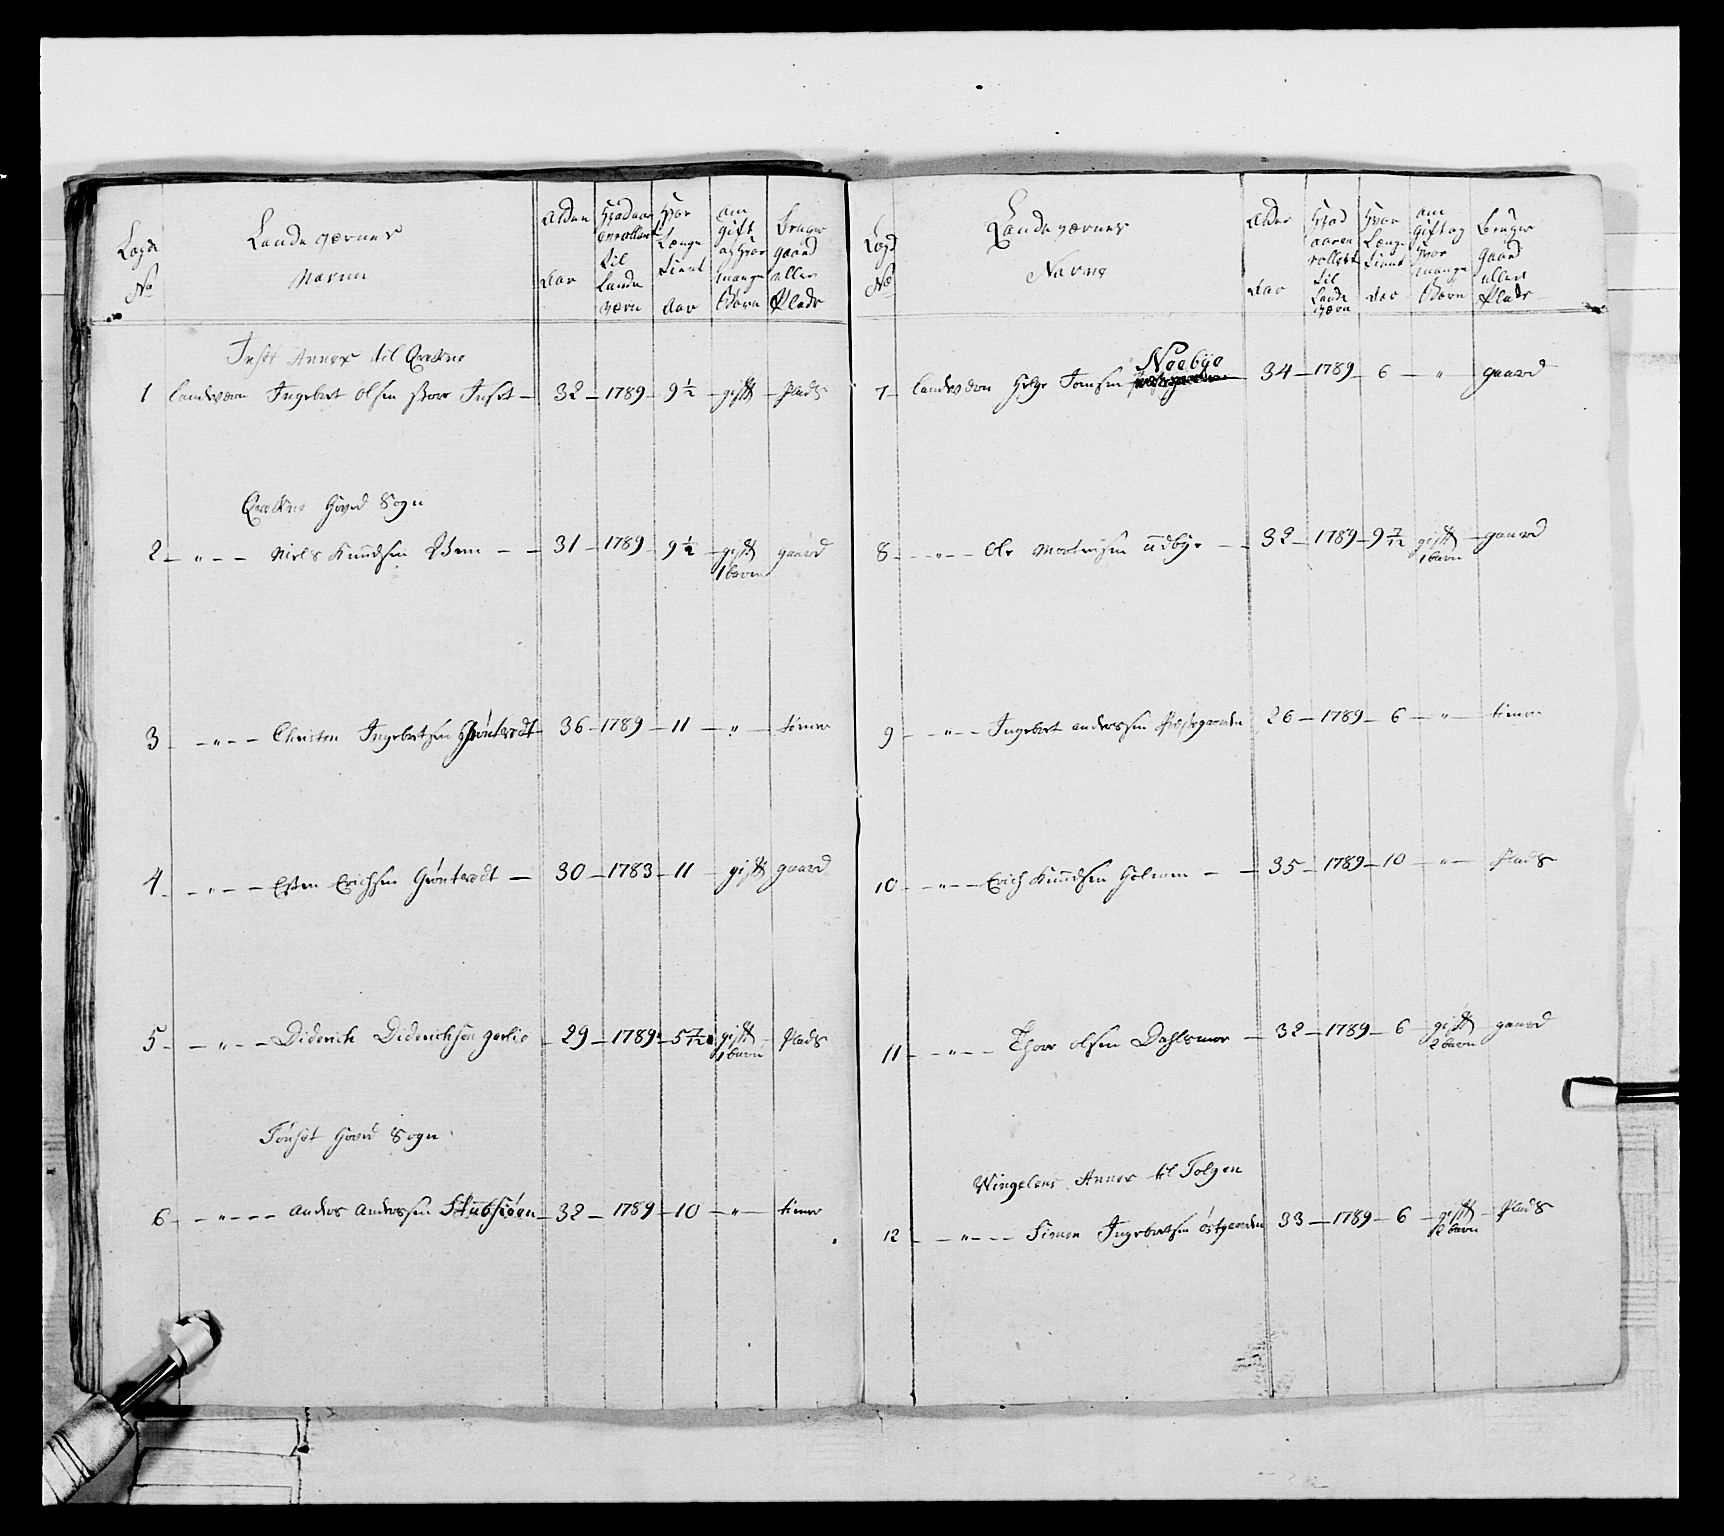 Lægds No
Landeværnes Navne
Alder Aar
Hvad aar enrollert til Lande værn
Hvor Længe tient Aar
om gift og Hvor mange Børn
Bruger gaard eller Plads
Inset Annex til Qvekne
1 Landeværn Ingebret Olsen store Inset – 32 – 1789 – 9 1/2 – gift – Plads
Qvekne Hoved Sogn
2 – " – – Niels Knudsen – – 31 – 1789 – 9 1/2 – gift gaard
1 barn
3 – – " – – Christen Ingebretsen Grøntrødt – 36 – 1789 – 11 – " – tiener
4 – – " – – Esten Erichsen Grøntrødt – 30 – 1783 – 11 – gift gaard
5 – – " – – Diderich Diderichsen – 29 – 1789 – 5 7/12 gift – Plads
1 barn
Tønset Hoved Sogn
6 – – " – – – Anders Andersen Stubsiøen – 32 – 1789 – 10 – " – tiener
Lægd No
Landeværnes Navne
Alder Aar
Hvad aar en rollert til Lande værn
Hvor Længe tient Aar
om Gift og Hvor mange Børn
Bruger gaard eller Plads
Noebye
7 – Landeværn Helge Jonsen – 34 – 1789 – 6 – " – gaard
8 – – " – – Ole Mortensen Udbye – – 32 – 1789 – 9 7/12 gift – gaard
1 barn
9 – – " – – Ingebret Andersen Præstgaarden 26 – 1789 – 6 – " – tiener
10 – – " – – Erich Knudsen Holmen – – 35 – 1789 – 10 – " – Plads
11 – – " – – Thore Olsen Dahlsmoe – 32 – 1789 – 6 – gift – gaard
2 barn
Wingelens Annex til Tolgen
12 – – " – – – Simen Ingebretsen Østgaarden 33 – 1789 – 6 – gift – Plads
2 barn